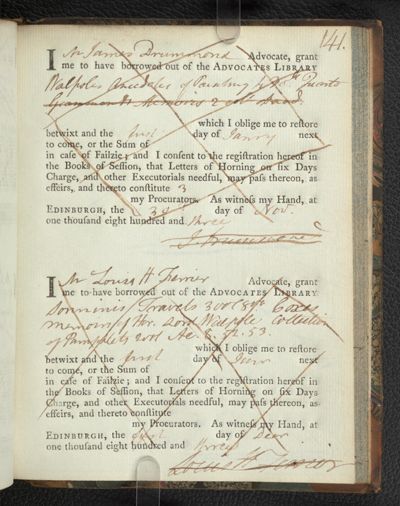 141.
I Mr James Drummond Advocate, grant
me to have borrowed out of the ADVOCATES LIBRARY
Walpoles Anecdotes of Painting Quarto
Memoires 2
which I oblige me to reſtore
betwixt and the first day of Janry next
to come, or the Sum of
in caſe of Failzie; and I conſent to the regiſtration hereof in
the Books of Seſſion, that Letters of Horning on ſix Days
Charge, and other Executorials needful, may paſs thereon, as
effeirs, and thereto conſtitute 3
my Procurators. As witneſs my Hand, at
EDINBURGH, the 3d day of Nov.
one thouſand eight hundred and three
J. Drummond
I Mr Louis H Ferrier Advocate, grant
me to have borrowed out of the ADVOCATES LIBRARY
Travels
memoirs Walpole Collection
of Pamphlets 53.
which I oblige me to reſtore
betwixt and the first day of next
to come, or the Sum of
in caſe of Failzie; and I conſent to the regiſtration hereof in
the Books of Seſſion, that Letters of Horning on ſix Days
Charge, and other Executorials needful, may paſs thereon, as
effeirs, and thereto conſtitute
my Procurators. As witneſs my Hand, at
EDINBURGH, the first day of Decr
one thouſand eight hundred and three
Louis H. Ferrier